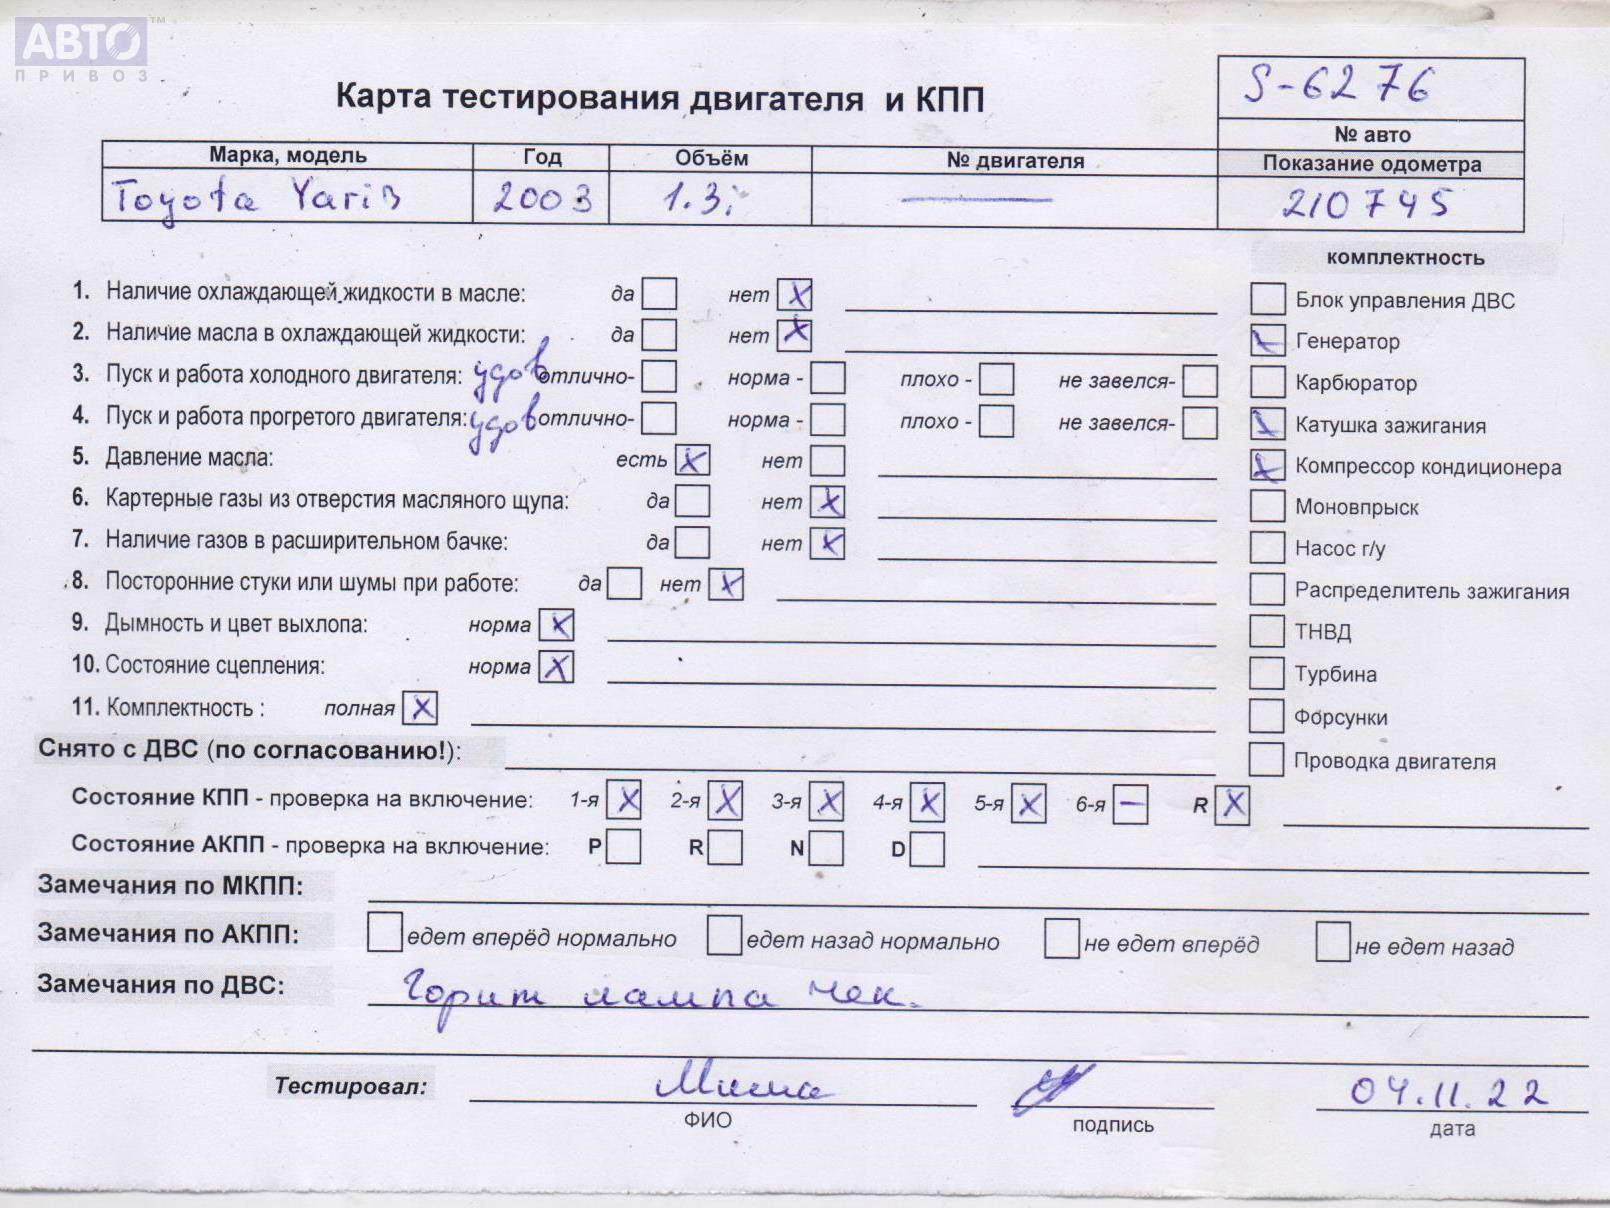 АВТО™
ПРИВОЗ
Карта тестирования двигателя и КПП
S-6276
№ авто
Марка, модель Год Объём № двигателя Показание одометра
Toyota Yaris 2003 1.3i — 210745
комплектность
1. Наличие охлаждающей жидкости в масле: да нет X
2. Наличие масла в охлаждающей жидкости: да нет X
3. Пуск и работа холодного двигателя: удов отлично- норма - плохо - не завелся-
4. Пуск и работа прогретого двигателя: удов отлично- норма - плохо - не завелся-
5. Давление масла: есть X нет
6. Картерные газы из отверстия масляного щупа: да нет X
7. Наличие газов в расширительном бачке: да нет X
8. Посторонние стуки или шумы при работе: да нет X
9. Дымность и цвет выхлопа: норма X
10. Состояние сцепления: норма X
11. Комплектность : полная X
Блок управления ДВС
X Генератор
Карбюратор
X Катушка зажигания
X Компрессор кондиционера
Моновпрыск
Насос г/у
Распределитель зажигания
ТНВД
Турбина
Форсунки
Проводка двигателя
Снято с ДВС (по согласованию!):
Состояние КПП - проверка на включение: 1-я X 2-я X 3-я X 4-я X 5-я X 6-я — R X
Состояние АКПП - проверка на включение: P R N D
Замечания по МКПП:
Замечания по АКПП: едет вперёд нормально едет назад нормально не едет вперёд не едет назад
Замечания по ДВС: Горит лампа чек.
Тестировал: Миша 04.11.22
ФИО подпись дата